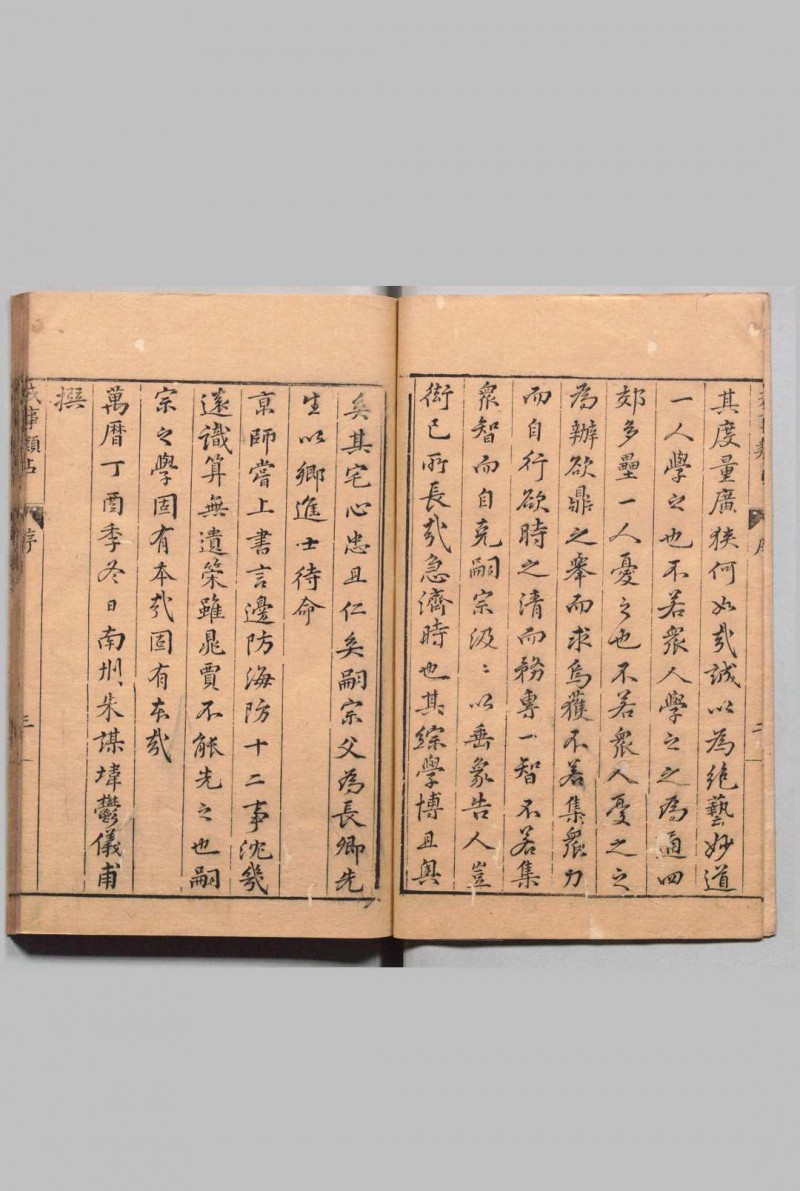 其度量廣狹何如哉誠以為絶藝妙道
一人學之也不若衆人學之之為適四
郊多壘一人憂之也不若衆人憂之之
為辦欲鼎之舉而求烏獲不若集衆力
而自行欲時之清而務專一智不若集
衆智而自克嗣宗汲〻以垂象告人豈
衒已所長哉急濟時也其綜學博且輿
序
二
矣其宅心忠且仁矣嗣宗父為長卿先
生以鄉進士待命
京師嘗上書言邊防海防十二事沈幾
遠識算無遺策雖晁賈不能先之也嗣
宗之學固有本哉固有本哉
萬曆丁酉季冬日南州朱謀㙔鬱儀甫
撰
戎事類占
序
三